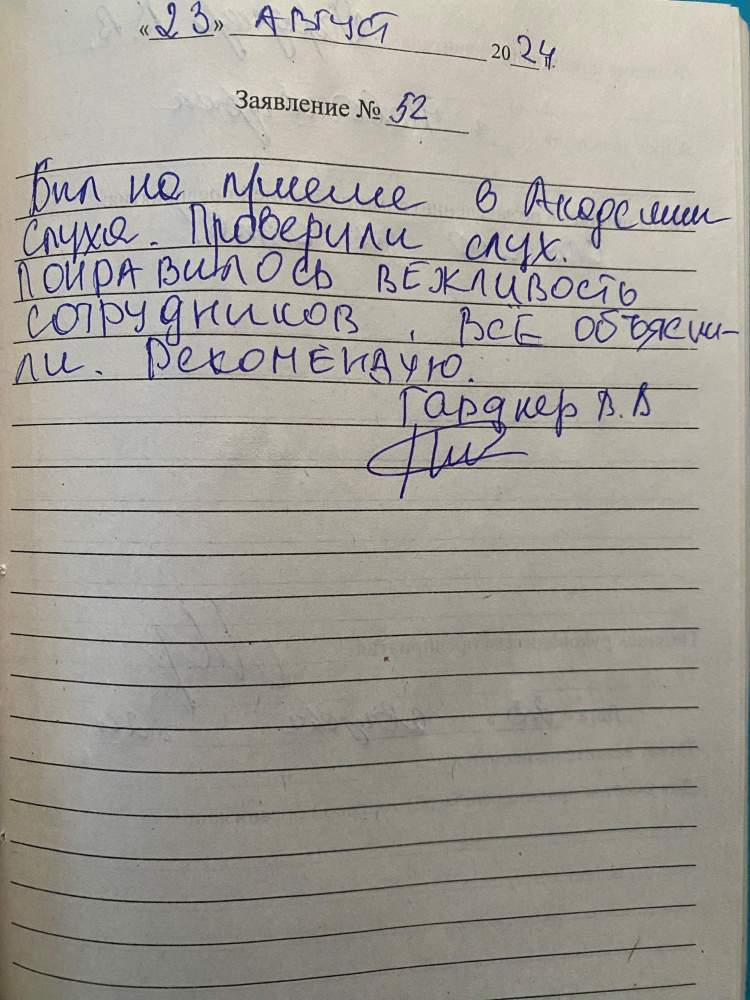 «23» АВГУСТ 2024 г.
Заявление № 52
Был на приеме в Академии
слуха. Проверили слух.
ПОНРАВИЛОСЬ ВЕЖЛИВОСТЬ
СОТРУДНИКОВ, ВСЕ ОБЪЯСНИ-
ЛИ. РЕКОМЕНДУЮ.
Гарднер В.В